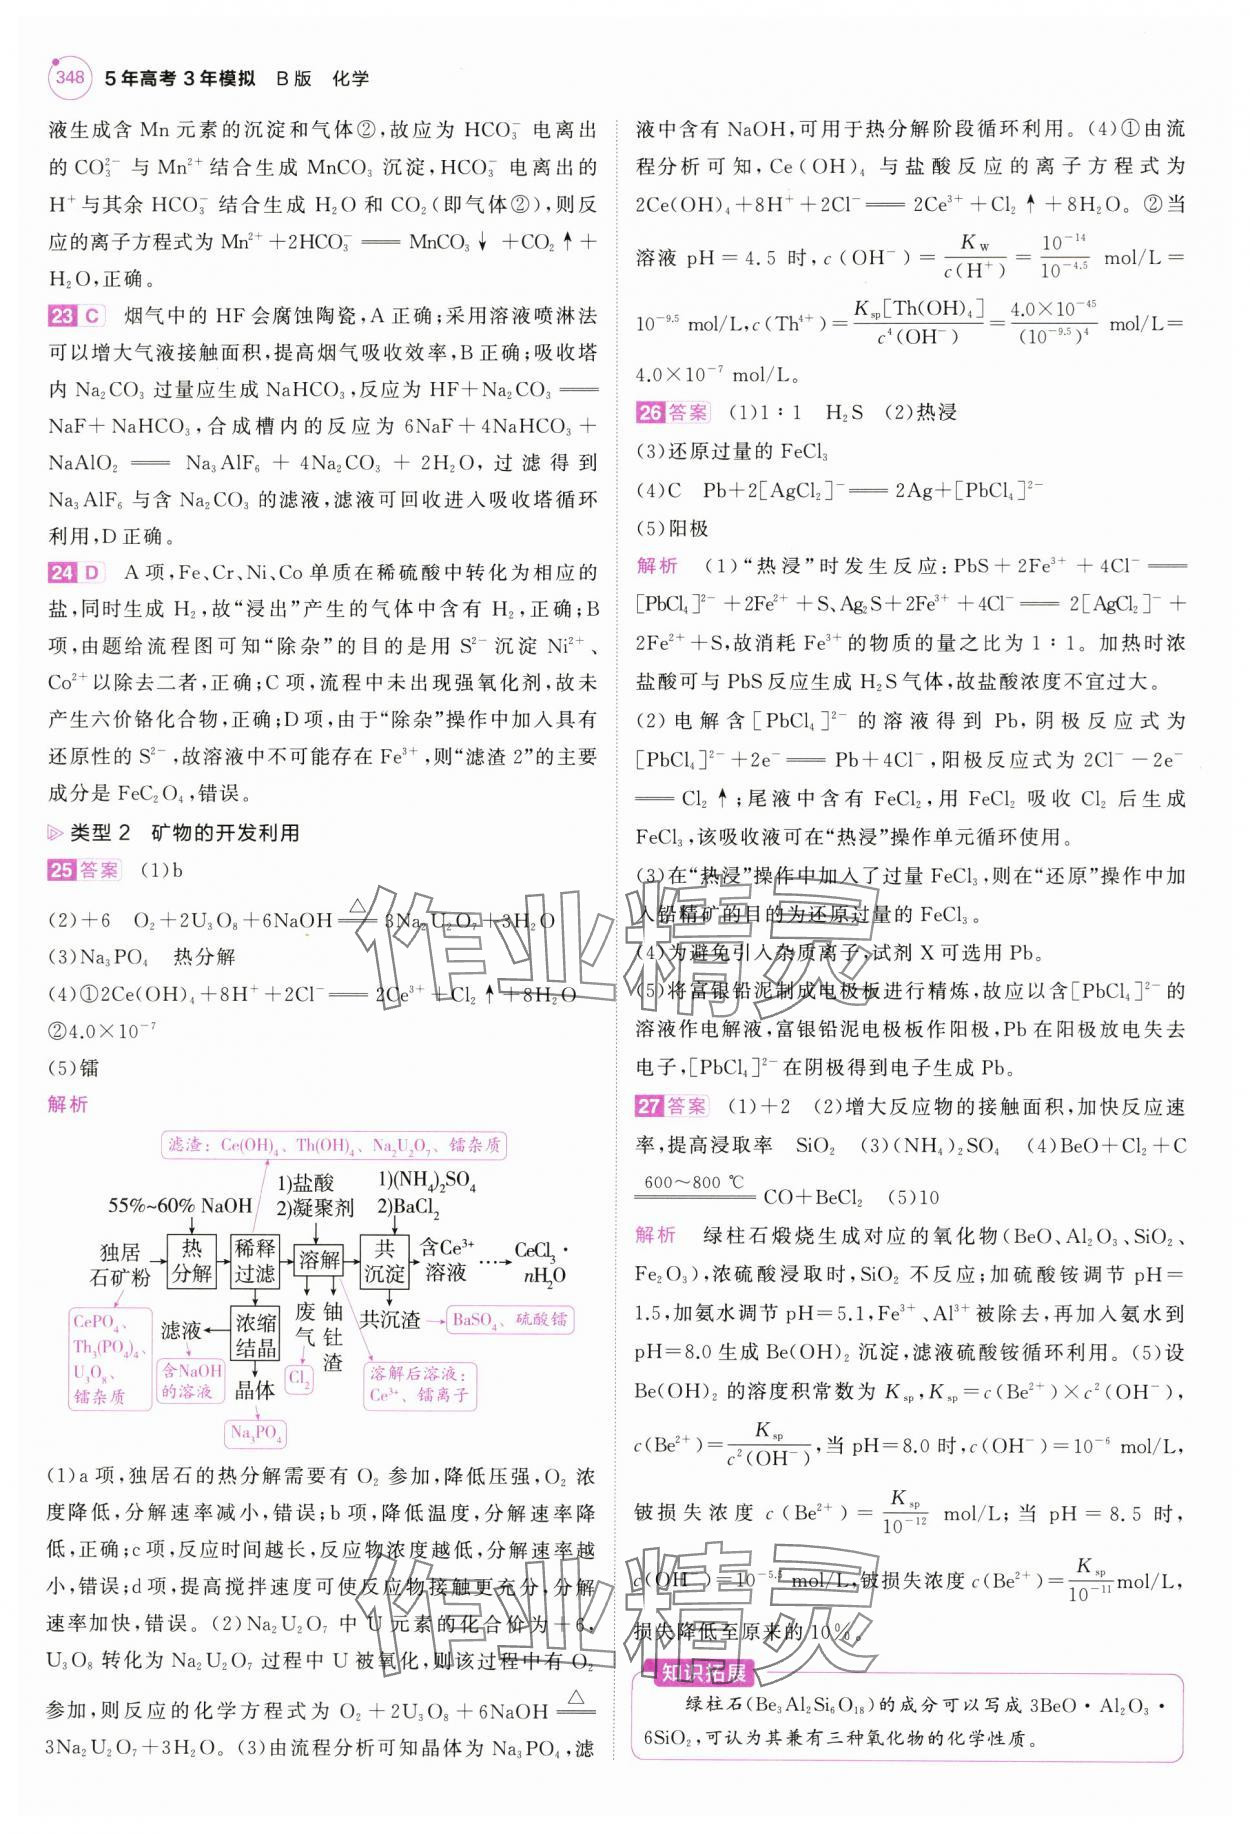 348 5年高考3年模拟 B版 化学
液生成含 Mn 元素的沉淀和气体②,故应为 HCO₃⁻ 电离出
的 CO₃²⁻ 与 Mn²⁺ 结合生成 MnCO₃ 沉淀,HCO₃⁻ 电离出的
H⁺与其余 HCO₃⁻ 结合生成 H₂O 和 CO₂(即气体②),则反
应的离子方程式为 Mn²⁺+2HCO₃⁻ ══ MnCO₃↓+CO₂↑+
H₂O,正确。
23 C 烟气中的 HF 会腐蚀陶瓷,A 正确;采用溶液喷淋法
可以增大气液接触面积,提高烟气吸收效率,B 正确;吸收塔
内 Na₂CO₃ 过量应生成 NaHCO₃,反应为 HF+Na₂CO₃ ══
NaF+NaHCO₃,合成槽内的反应为 6NaF+4NaHCO₃+
NaAlO₂ ══ Na₃AlF₆+4Na₂CO₃+2H₂O,过滤得到
Na₃AlF₆ 与含 Na₂CO₃ 的滤液,滤液可回收进入吸收塔循环
利用,D 正确。
24 D A 项,Fe、Cr、Ni、Co 单质在稀硫酸中转化为相应的
盐,同时生成 H₂,故“浸出”产生的气体中含有 H₂,正确;B
项,由题给流程图可知“除杂”的目的是用 S²⁻ 沉淀 Ni²⁺、
Co²⁺以除去二者,正确;C 项,流程中未出现强氧化剂,故未
产生六价铬化合物,正确;D 项,由于“除杂”操作中加入具有
还原性的 S²⁻,故溶液中不可能存在 Fe³⁺,则“滤渣 2”的主要
成分是 FeC₂O₄,错误。
类型 2 矿物的开发利用
25 答案 (1)b
(2)+6 O₂+2U₃O₈+6NaOH ══△ 3Na₂U₂O₇+3H₂O
(3)Na₃PO₄ 热分解
(4)①2Ce(OH)₄+8H⁺+2Cl⁻ ══ 2Ce³⁺+Cl₂↑+8H₂O
②4.0×10⁻⁷
(5)镭
解析
滤渣：Ce(OH)₄、Th(OH)₄、Na₂U₂O₇、镭杂质
1)盐酸 1)(NH₄)₂SO₄
55%~60% NaOH 2)凝聚剂 2)BaCl₂
独居 热 稀释 溶解 共 含Ce³⁺ … CeCl₃·
石矿粉 分解 过滤 沉淀 溶液 nH₂O
CePO₄、 滤液 浓缩 废 铀 共沉渣 BaSO₄、硫酸镭
Th₃(PO₄)₄、 结晶 气 钍
U₃O₈、 含NaOH 渣 溶解后溶液：
镭杂质 的溶液 晶体 Cl₂ Ce³⁺、镭离子
Na₃PO₄
(1)a 项,独居石的热分解需要有 O₂ 参加,降低压强,O₂ 浓
度降低,分解速率减小,错误;b 项,降低温度,分解速率降
低,正确;c 项,反应时间越长,反应物浓度越低,分解速率越
小,错误;d 项,提高搅拌速度可使反应物接触更充分,分解
速率加快,错误。(2)Na₂U₂O₇ 中 U 元素的化合价为+6,
U₃O₈ 转化为 Na₂U₂O₇ 过程中 U 被氧化,则该过程中有 O₂
参加,则反应的化学方程式为 O₂+2U₃O₈+6NaOH ══△
3Na₂U₂O₇+3H₂O。(3)由流程分析可知晶体为 Na₃PO₄,滤
液中含有 NaOH,可用于热分解阶段循环利用。(4)①由流
程分析可知,Ce(OH)₄ 与盐酸反应的离子方程式为
2Ce(OH)₄+8H⁺+2Cl⁻ ══ 2Ce³⁺+Cl₂↑+8H₂O。②当
溶液 pH=4.5 时,c(OH⁻)=K_w/c(H⁺)=10⁻¹⁴/10⁻⁴·⁵ mol/L=
10⁻⁹·⁵ mol/L,c(Th⁴⁺)=K_sp[Th(OH)₄]/c⁴(OH⁻)=4.0×10⁻⁴⁵/(10⁻⁹·⁵)⁴ mol/L=
4.0×10⁻⁷ mol/L。
26 答案 (1)1∶1 H₂S (2)热浸
(3)还原过量的 FeCl₃
(4)C Pb+2[AgCl₂]⁻ ══ 2Ag+[PbCl₄]²⁻
(5)阳极
解析 (1)“热浸”时发生反应:PbS+2Fe³⁺+4Cl⁻ ══
[PbCl₄]²⁻+2Fe²⁺+S、Ag₂S+2Fe³⁺+4Cl⁻ ══ 2[AgCl₂]⁻+
2Fe²⁺+S,故消耗 Fe³⁺的物质的量之比为 1∶1。加热时浓
盐酸可与 PbS 反应生成 H₂S 气体,故盐酸浓度不宜过大。
(2)电解含[PbCl₄]²⁻ 的溶液得到 Pb,阴极反应式为
[PbCl₄]²⁻+2e⁻ ══ Pb+4Cl⁻,阳极反应式为 2Cl⁻-2e⁻
══ Cl₂↑;尾液中含有 FeCl₂,用 FeCl₂ 吸收 Cl₂ 后生成
FeCl₃,该吸收液可在“热浸”操作单元循环使用。
(3)在“热浸”操作中加入了过量 FeCl₃,则在“还原”操作中加
入铅精矿的目的为还原过量的 FeCl₃。
(4)为避免引入杂质离子,试剂 X 可选用 Pb。
(5)将富银铅泥制成电极板进行精炼,故应以含[PbCl₄]²⁻的
溶液作电解液,富银铅泥电极板作阳极,Pb 在阳极放电失去
电子,[PbCl₄]²⁻在阴极得到电子生成 Pb。
27 答案 (1)+2 (2)增大反应物的接触面积,加快反应速
率,提高浸取率 SiO₂ (3)(NH₄)₂SO₄ (4)BeO+Cl₂+C
══600～800 ℃ CO+BeCl₂ (5)10
解析 绿柱石煅烧生成对应的氧化物(BeO、Al₂O₃、SiO₂、
Fe₂O₃),浓硫酸浸取时,SiO₂ 不反应;加硫酸铵调节 pH=
1.5,加氨水调节 pH=5.1,Fe³⁺、Al³⁺被除去,再加入氨水到
pH=8.0 生成 Be(OH)₂ 沉淀,滤液硫酸铵循环利用。(5)设
Be(OH)₂ 的溶度积常数为 K_sp,K_sp=c(Be²⁺)×c²(OH⁻),
c(Be²⁺)=K_sp/c²(OH⁻),当 pH=8.0 时,c(OH⁻)=10⁻⁶ mol/L,
铍损失浓度 c(Be²⁺)=K_sp/10⁻¹² mol/L;当 pH=8.5 时,
c(OH⁻)=10⁻⁵·⁵ mol/L,铍损失浓度 c(Be²⁺)=K_sp/10⁻¹¹ mol/L,
损失降低至原来的 10%。
知识拓展
绿柱石(Be₃Al₂Si₆O₁₈)的成分可以写成 3BeO·Al₂O₃·
6SiO₂,可认为其兼有三种氧化物的化学性质。
作业精灵
作业精灵